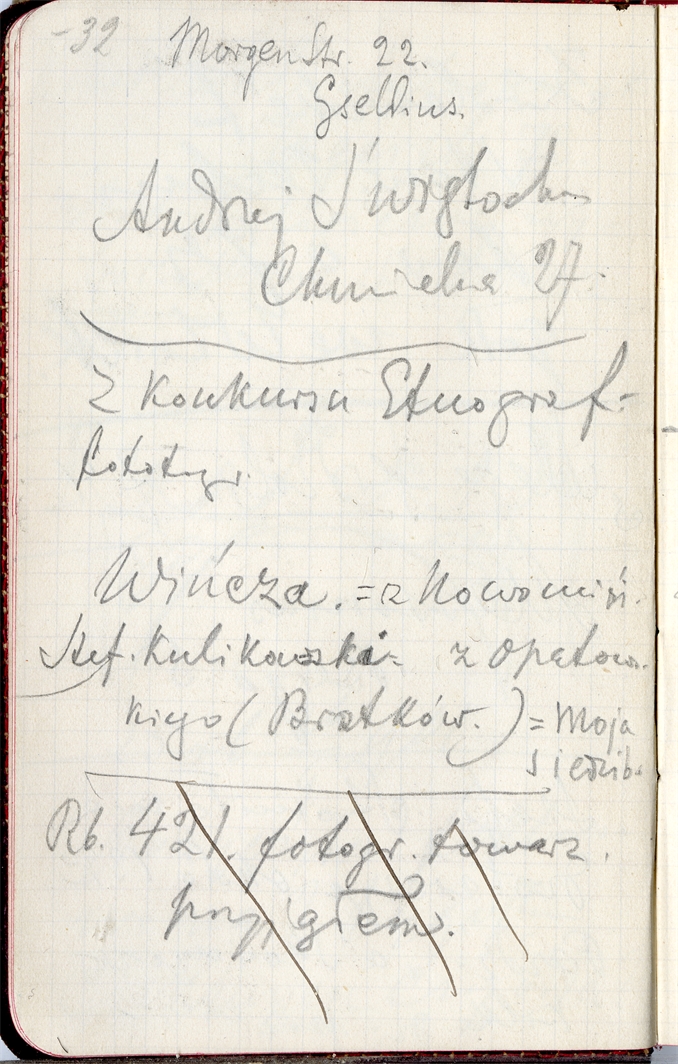 -32
MorgenStr. 22.
Gsellius.
Andrzej Świętochow
Chmielna 27.
Z Konkursu Etnograf-
fototyp.
Wińcza. = z Nowomiń.
Stef. Kulikowski = z Opatow.
kiego (Bratków.) = Moja
siedzib.
Rb. 421. fotogr. towarz.
przyjąłem.